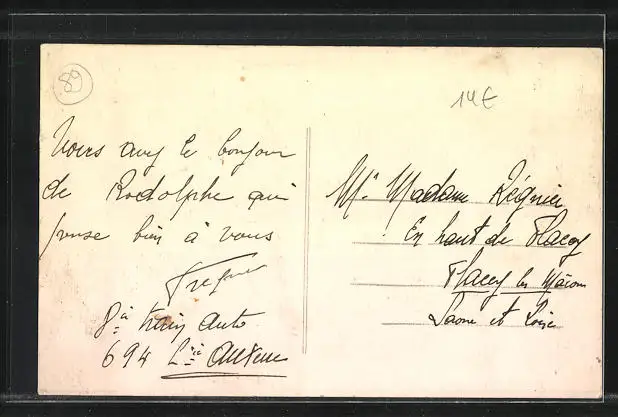 89
14€
Vous avez le bonjour
de Rodolphe qui
pense bien à vous
8è train auto
694 Cie Auxerre
Mr Madame Régnier
En haut de Flacey
Flacey les Mâcon
Saone et Loire